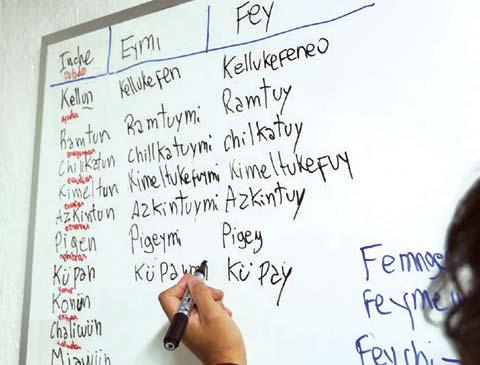 Inche Eymi Fey
Kellun Kellukefen Kellukefeneo
Ayudar
Ramtun Ramtuymi Ramtuy
preguntar
Chillkatun Chillkatuymi chilkatuy
estudiar
Kimeltun Kimeltukefuymi Kimeltukefuy
enseñar
Azkintun Azkintuymi Azkintuy
observar
Pigen Pigeymi Pigey
nombrar
Küpan Küpaymi Küpay
venir
Konün
Chaliwün
saludar
Miawün
Feymew
Feychi